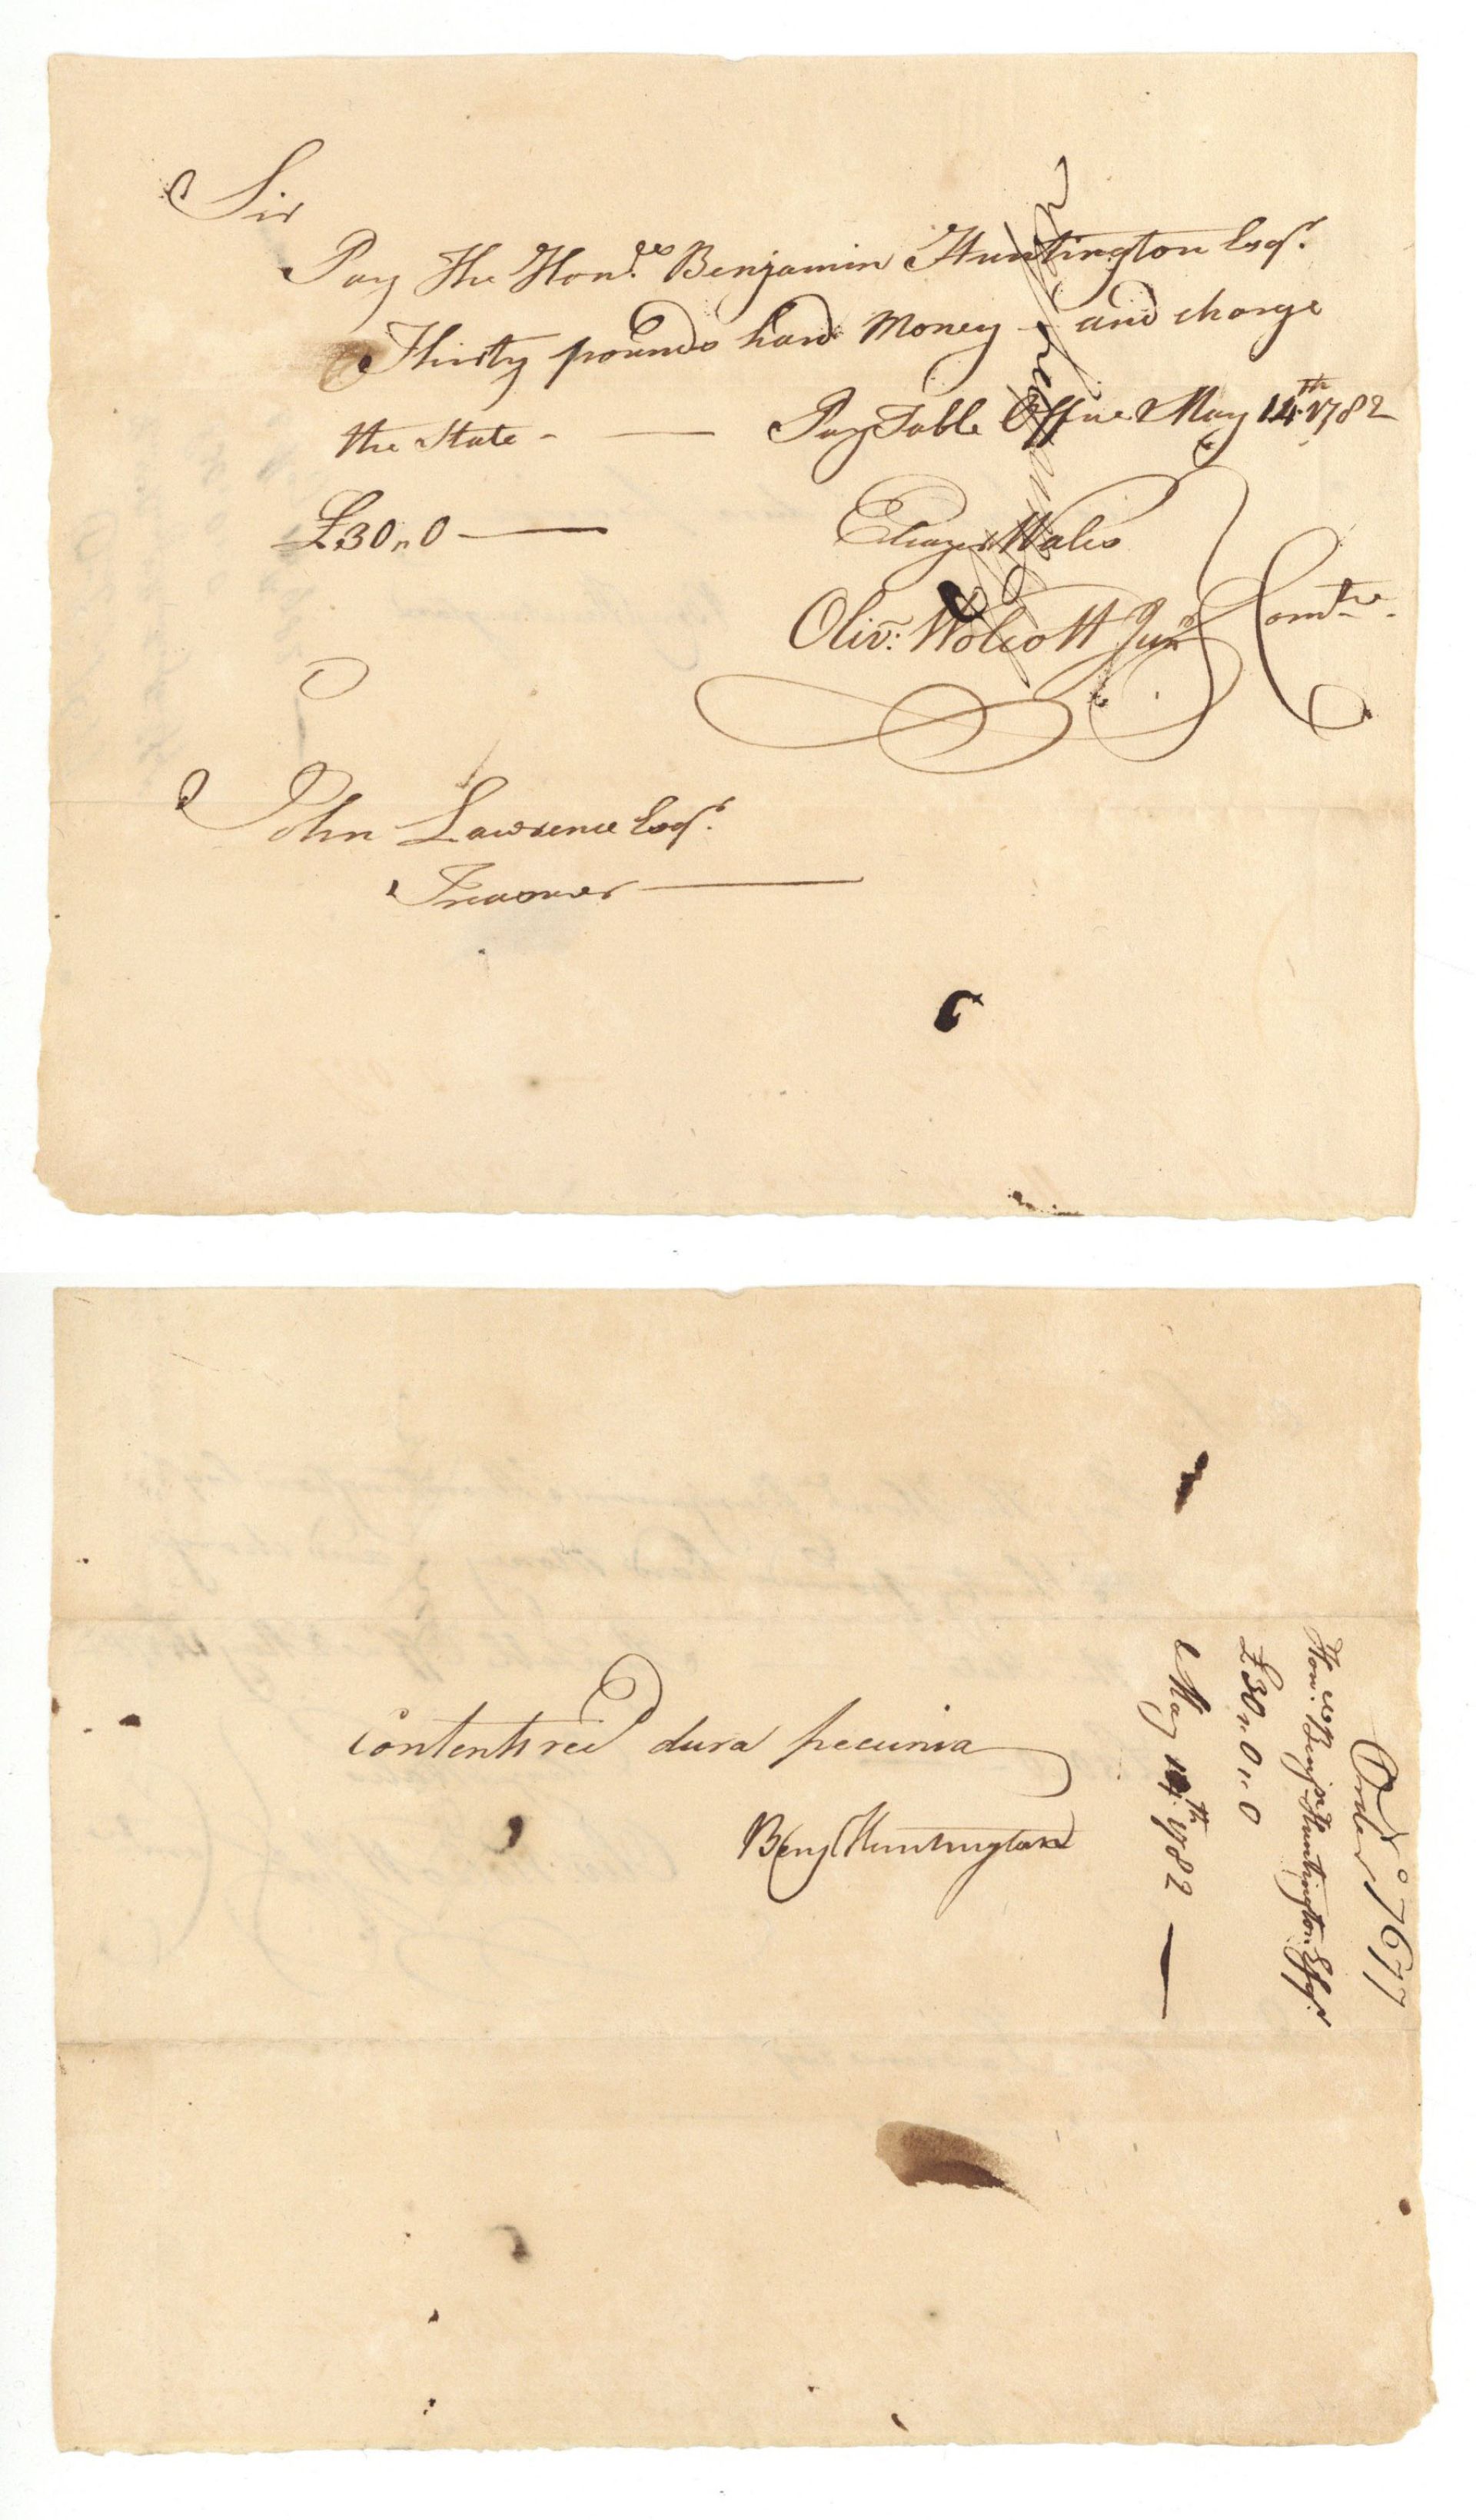 Sir
Pay The Hon.ble Benjamin Huntington Esqr.
Thirty pounds hard Money - and charge
the State - — Pay Table Office May 14th. 1782
£30,, 0 —
Eleazer Wales
Oliv: Wolcott Junr Comtee.
John Lawrence Esqr.
Treasurer —
Order No 7677
Hon. ble Benjn. Huntington Esqr.
£30,, 0,, 0
May 14th. 1782 —
Contents recd dura pecunia
Benj Huntington